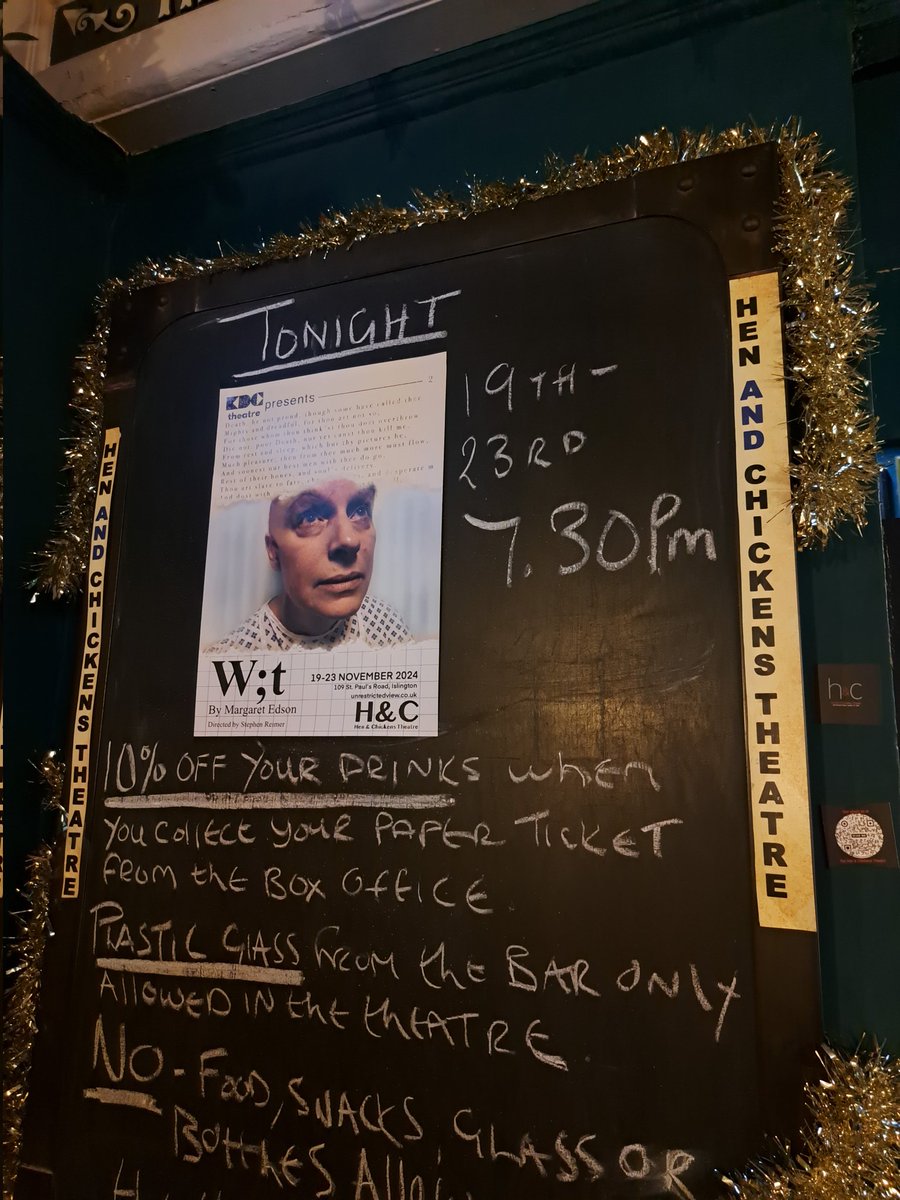 TONIGHT
KDC theatre presents
2
Death, be not proud, though some have called thee
Mighty and dreadful, for thou art not so,
For those whom thou think'st thou dost overthrow
Die not, poor Death, nor yet canst thou kill me.
From rest and sleep, which but thy pictures be,
Much pleasure; then from thee much more must flow,
And soonest our best men with thee do go,
Rest of their bones, and soul's delivery.
Thou art slave to fate,
desperate m
And dost with
19TH-
23RD
7.30Pm
W;t
By Margaret Edson
Directed by Stephen Reimer
19-23 NOVEMBER 2024
109 St. Paul's Road, Islington
unrestrictedview.co.uk
H&C
Hen & Chickens Theatre
10% OFF YOUR DRINKS when
you collect your PAPER TICKET
from the BOX OFFICE
PLASTIC GLASS from the BAR ONLY
ALLOWED IN the tHEATRE.
NO - FOOD, SNACKS, GLASS OR
BOTTLES
HEN AND CHICKENS THEATRE
HEN AND CHICKENS THEATRE
h c